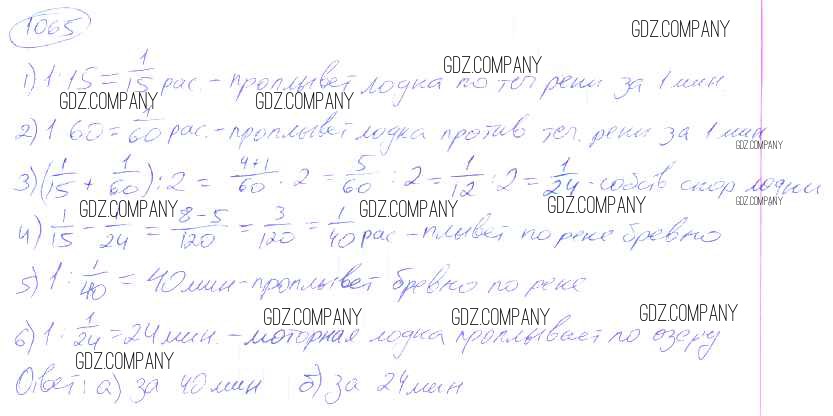 1065
GDZ.COMPANY
1) 1 : 15 = 1/15 рас. - проплывет лодка по теч реки за 1 мин.
GDZ.COMPANY
GDZ.COMPANY GDZ.COMPANY
2) 1 60 = 1/60 рас. - проплывет лодка против теч. реки за 1 мин
GDZ.COMPANY
3) (1/15 + 1/60) : 2 = 4+1/60 : 2 = 5/60 : 2 = 1/12 : 2 = 1/24 - собств скор лодки
GDZ.COMPANY GDZ.COMPANY GDZ.COMPANY GDZ.COMPANY
4) 1/15 - 1/24 = 8-5/120 = 3/120 = 1/40 рас - плывет по реке бревно
5) 1 : 1/40 = 40 мин - проплывет бревно по реке
GDZ.COMPANY GDZ.COMPANY GDZ.COMPANY
6) 1 : 1/24 = 24 мин. - моторная лодка проплывает по озеру
GDZ.COMPANY
Ответ: а) за 40 мин б) за 24 мин